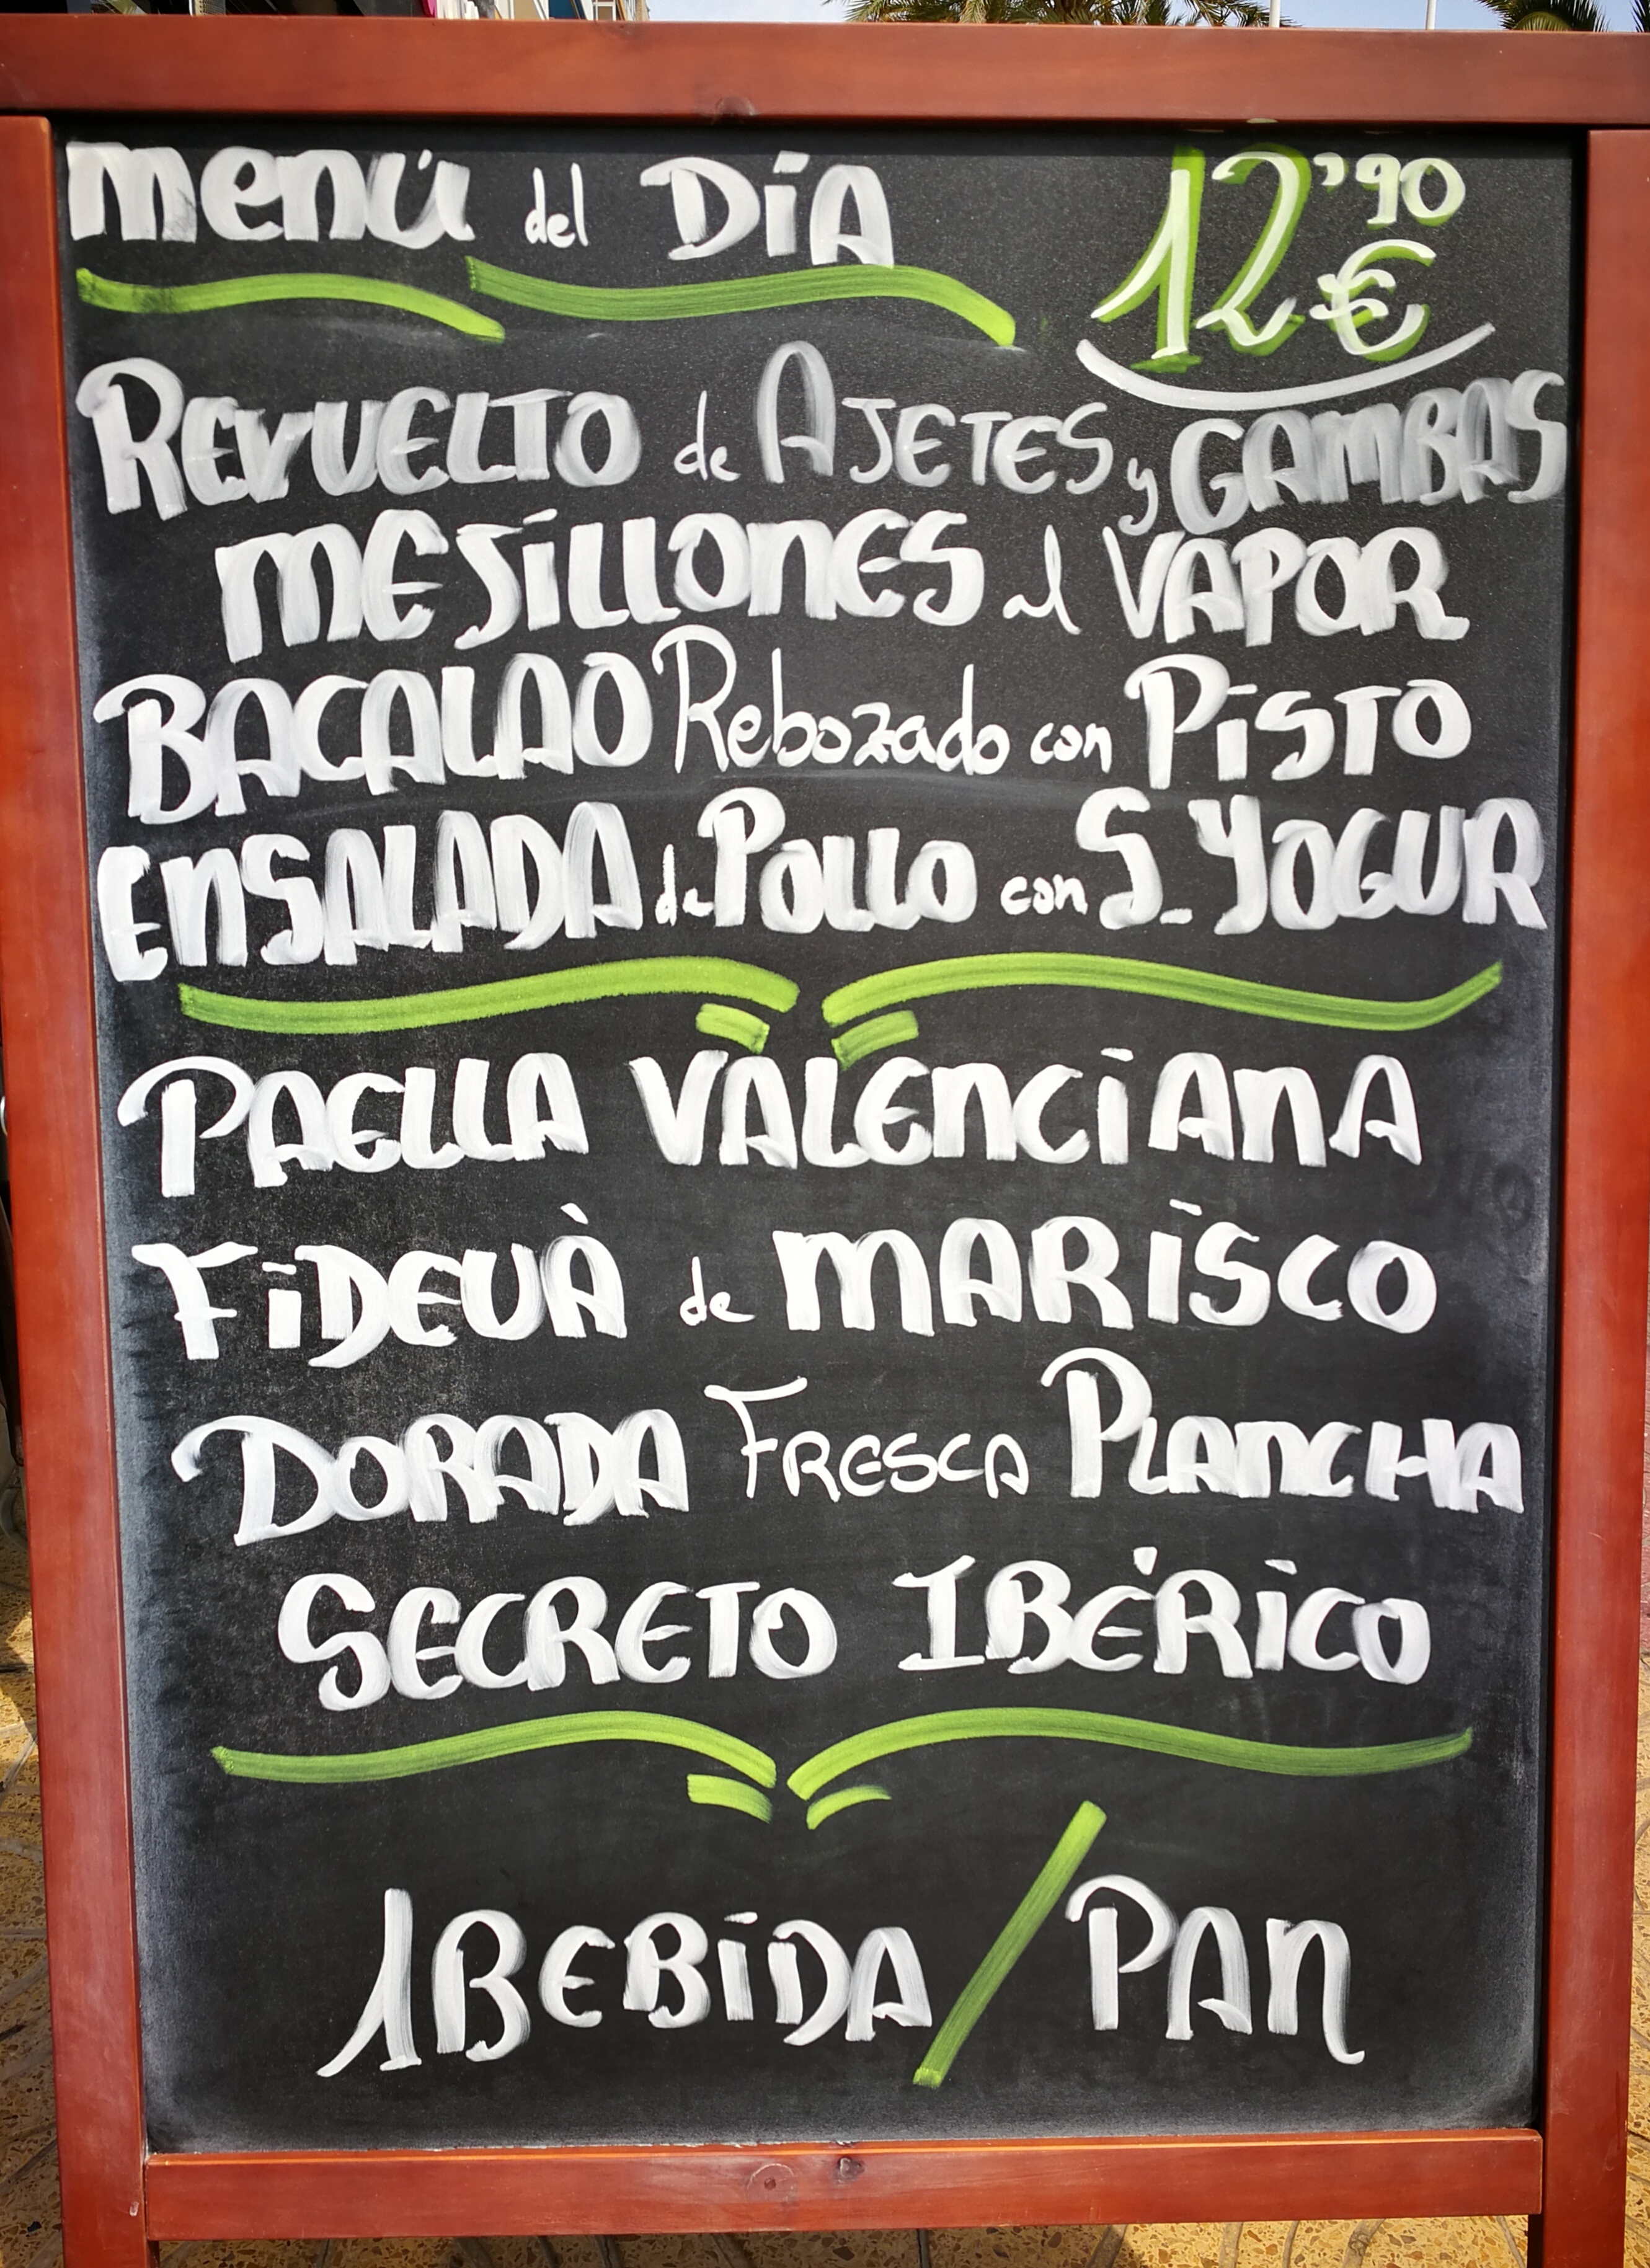 menú del DíA 12'90 €
REVUELTO de AJETES y GAMBAS
MEJILLONES al VAPOR
BACALAO Rebozado con PISTO
ENSALADA de POLLO con S. YOGUR
PAELLA VALENCIANA
FIDEUÀ de MARISCO
DORADA FRESCA PLANCHA
SECRETO IBÉRICO
1 BEBIDA / PAN